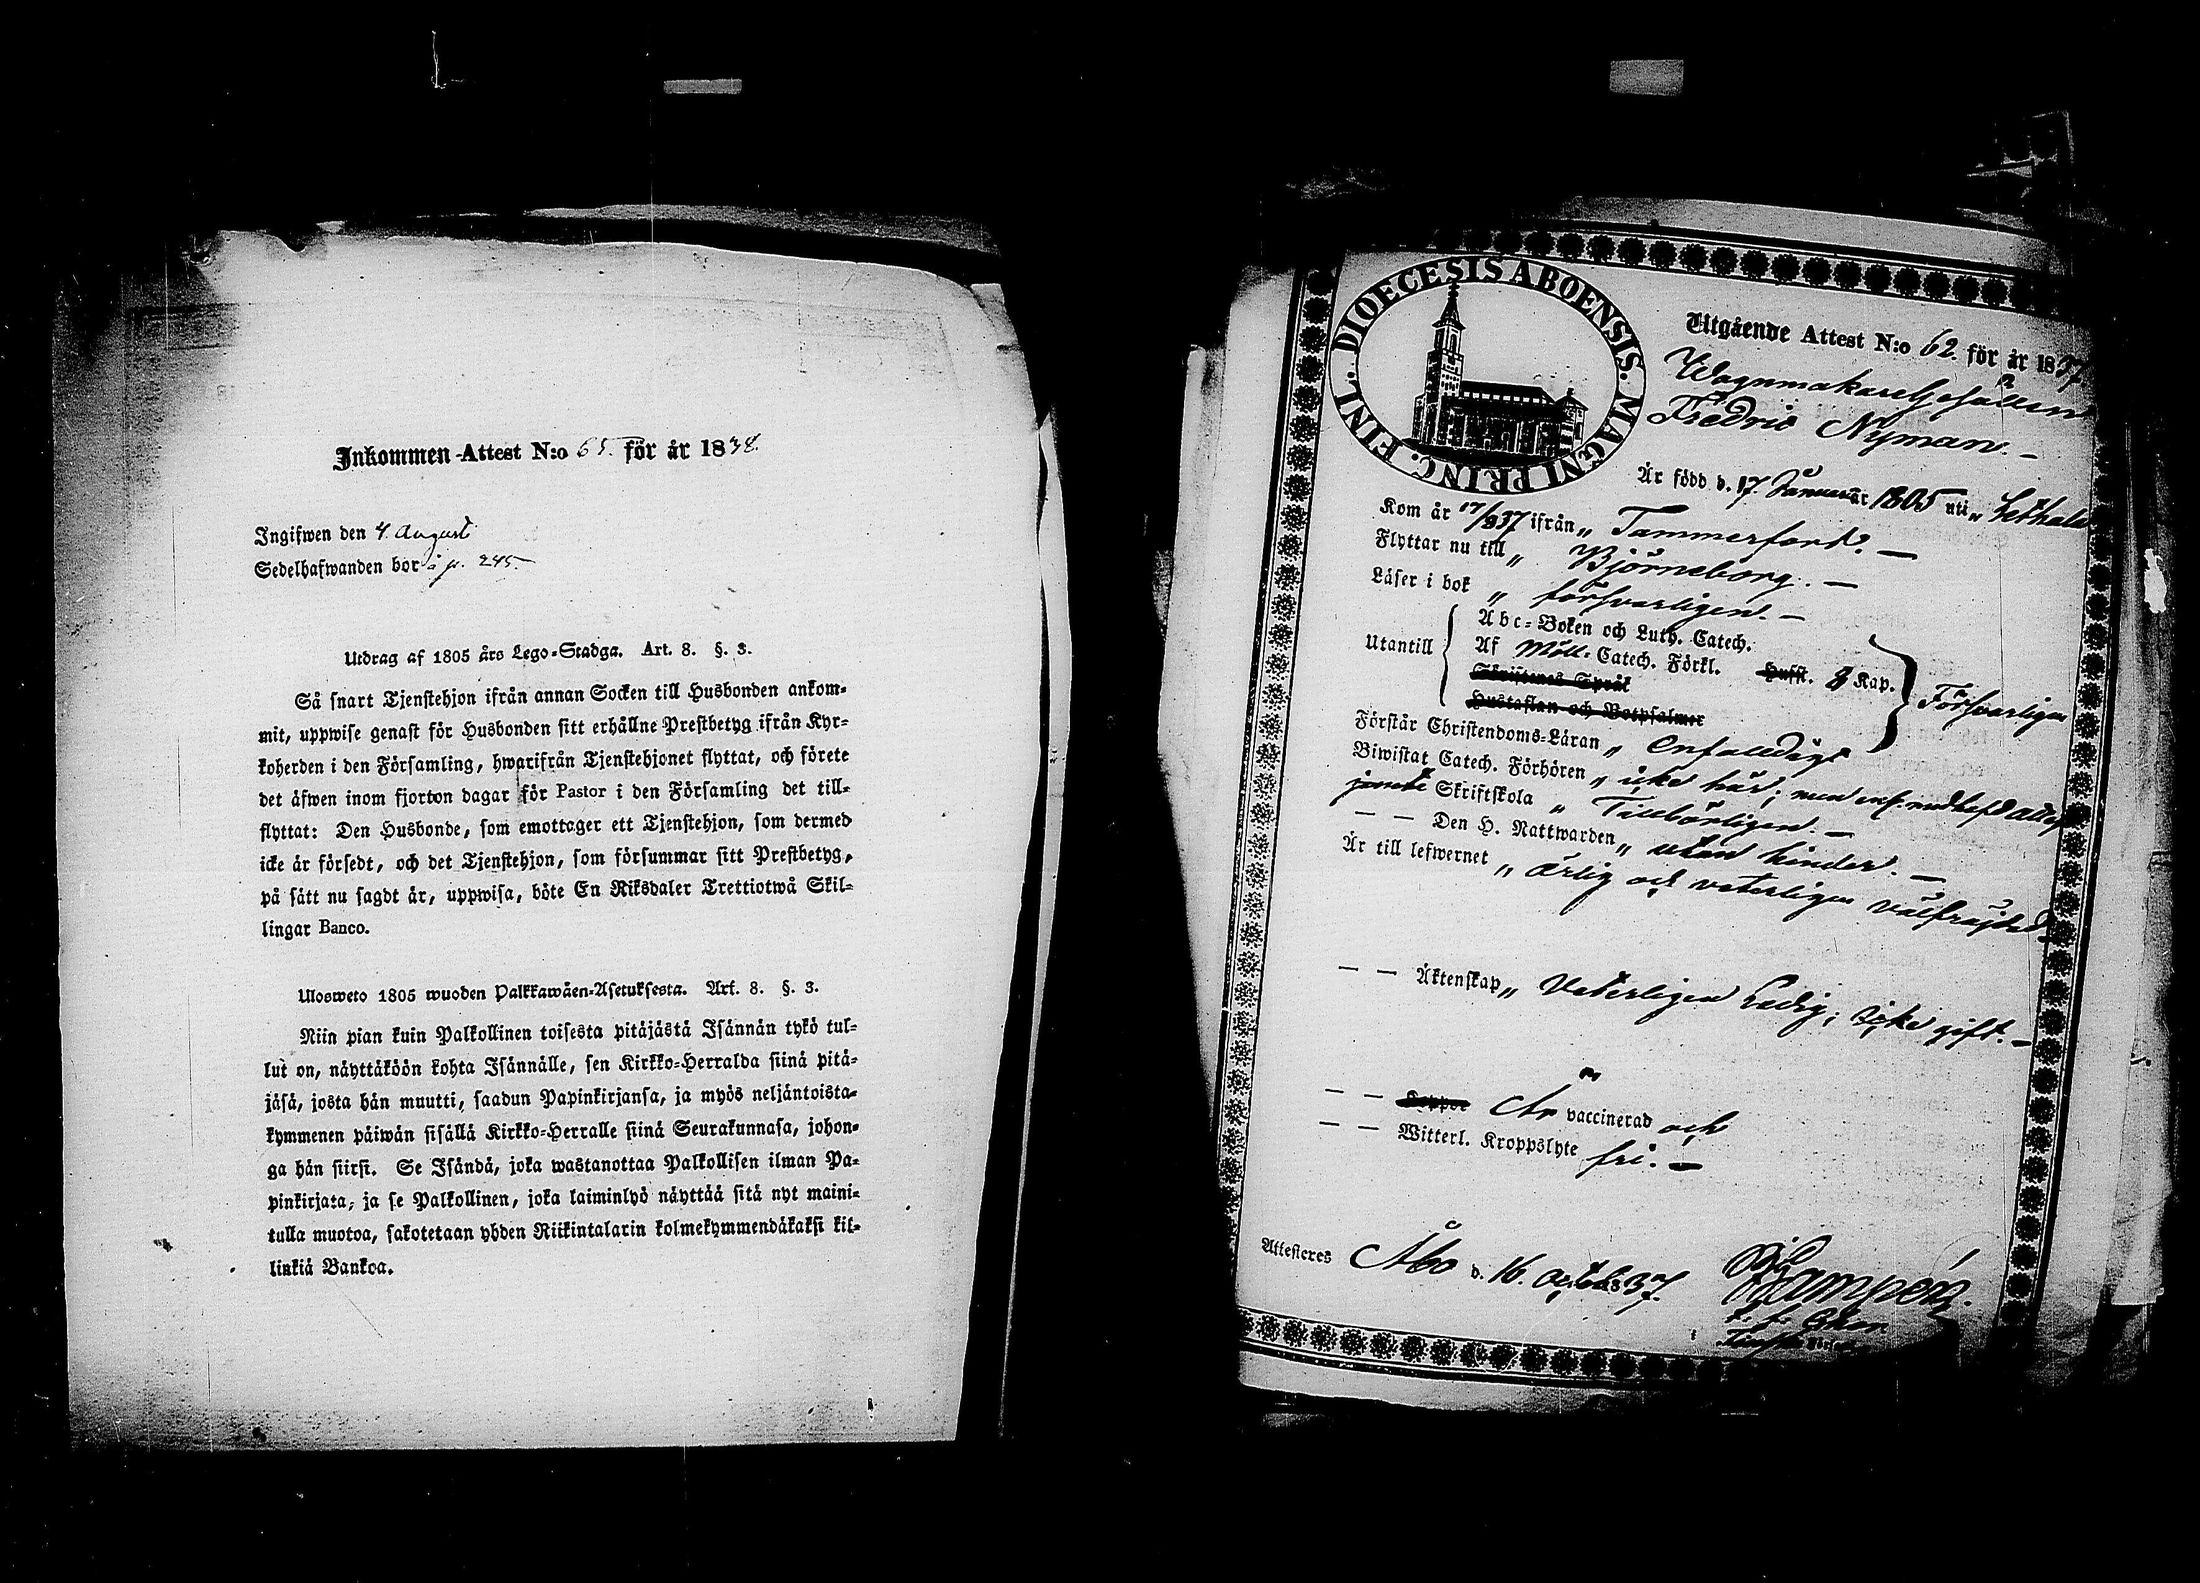 Inkommen-Attest N:o 65. för år 1838.
Ingifwen den 4. Augusti
Sedelhafwanden bor å p. 245.
Utdrag af 1805 års Lego-Stadga. Art. 8. §. 3.
Så snart Tjenstehjon ifrån annan Socken till Husbonden ankom-
mit, uppwise genast för Husbonden sitt erhållne Prestbetyg ifrån Kyr-
koherden i den Församling, hwarifrån Tjenstehjonet flyttat, och förete
det äfwen inom fjorton dagar för Pastor i den Församling det till-
flyttat: Den Husbonde, som emottager ett Tjenstehjon, som dermed
icke är försedt, och det Tjenstehjon, som försummar sitt Prestbetyg,
på sätt nu sagdt är, uppwisa, böte En Riksdaler Trettiotwå Skil-
lingar Banco.
Ulosweto 1805 wuoden Palkkawäen-Asetuksesta. Art. 8. §. 3.
Niin pian kuin Palkollinen toisesta pitäjästä Isännän tykö tul-
lut on, näyttäköön kohta Isännälle, sen Kirkko-Herralda siinä pitä-
jäsä, josta hän muutti, saadun Papinkirjansa, ja myös neljäntoista-
kymmenen päiwän sisällä Kirkko-Herralle siinä Seurakunnasa, johon-
ga hän siirsi. Se Isändä, joka wastanottaa Palkollisen ilman Pa-
pinkirjata; ja se Palkollinen, joka laiminlyö näyttää sitä nyt maini-
tulla muotoa, sakotetaan yhden Riikintalarin kolmekymmendäkaksi kil-
linkiä Bankoa.
DIOECESIS ABOENSIS. MAGNI PRINC. FINL.
Utgående Attest N:o 62. för år 1837
Wagnmakaregesällen
Fredric Nyman.
Är född d. 17. Januari 1805 uti
Kom år 17/837 ifrån " Tammerfors.
Flyttar nu till " Björneborg.
Läser i bok " försvarligen.
Utantill
Abc-Boken och Luth. Catech.
Af Möll. Catech. Förkl. Husst. 8 Kap.
Skriftenes Språk
Hustaflan och Botpsalmer
Försvarligen
Förstår Christendoms-Läran " enfaldigt
Biwistat Catech. Förhören " icke här; men enl. medhafd attest
Skriftskola " Tillbörligen.
— — Den H. Nattwarden " utan hinder.
Är till lefwernet " ärlig och veterligen välfrejdad.
— — Äktenskap " Veterligen ledig; icke gift.
— — Koppor Är vaccinerad och
— — Witterl. Kroppslyte fri.
Attesteres Åbo d. 16. 1837.